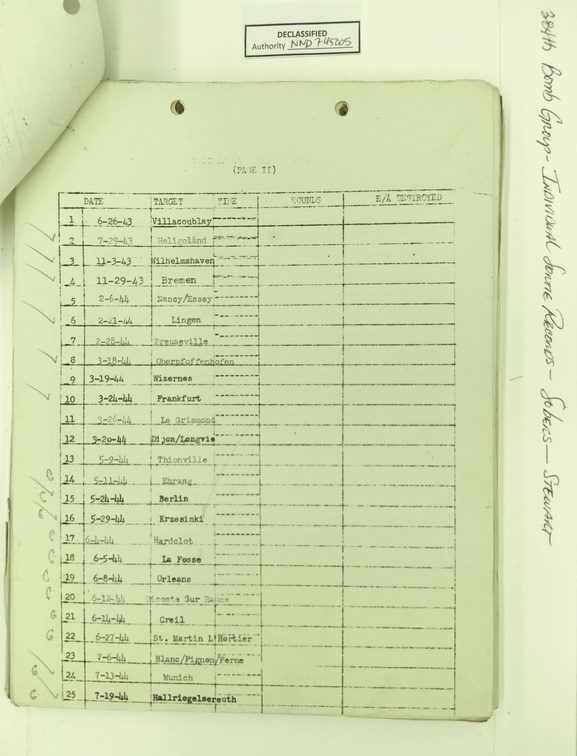 DECLASSIFIED
Authority NND 745005
384th Bomb Group - Individual Sortie Records - Sobers - Stewart
(PAGE II)
DATE TARGET TIME ROUNDS E/A DESTROYED
1 6-26-43 Villacoublay
2 7-29-43 Heligoland
3 11-3-43 Wilhelmshaven
4 11-29-43 Bremen
5 2-6-44 Nancy/Essey
6 2-21-44 Lingen
7 2-28-44
8 3-18-44 Oberpfoffenhofen
9 3-19-44 Wizernes
10 3-24-44 Frankfurt
11 3-26-44 La
12 3-20-44 Dijon/Longvic
13 5-9-44 Thionville
14 5-11-44 Ehrang
15 5-24-44 Berlin
16 5-29-44 Krzesinki
17 6-4-44 Hardelot
18 6-5-44 La Fosse
19 6-8-44 Orleans
20 6-12-44 Sur
21 6-14-44 Creil
22 6-27-44 St. Martin L'Hortier
23 7-6-44 Blanc/Pignon/Ferne
24 7-13-44 Munich
25 7-19-44 Hallriegelsereuth